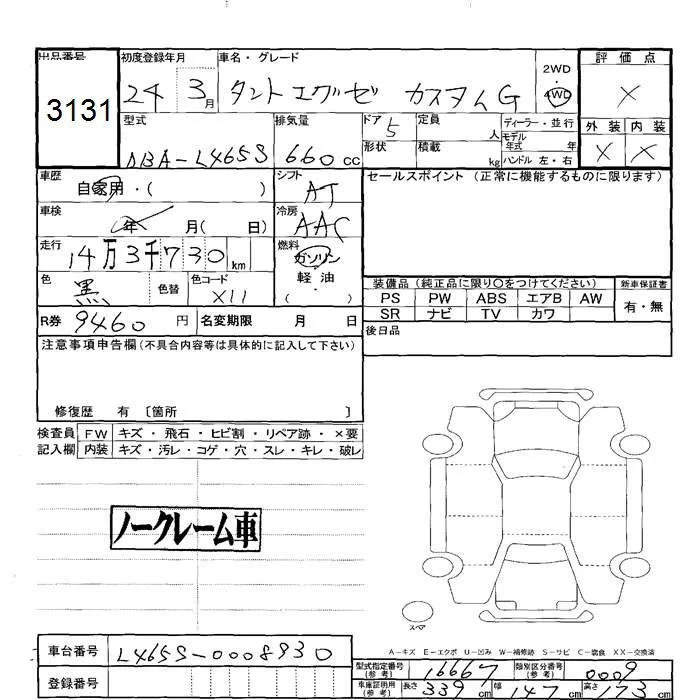 出品番号 3131 初度登録年月 24 3月 車名・グレード タントエグゼ カスタムG 2WD 4WD 評価点 X
外装 内装 X X
型式 DBA-L465S 排気量 660cc ドア 5 定員 人 ディーラー・並行
形状 積載 kg モデル年式 年 ハンドル 左・右
車歴 自家用・( ) シフト AT
セールスポイント (正常に機能するものに限ります)
車検 年 月( 日) 冷房 AAC
走行 14万3千730km 燃料 ガソリン・軽油・( )
色 黒 色替 色コード X11
装備品 (純正品に限り○をつけてください) 新車保証書
PS PW ABS エアB AW 有・無
SR ナビ TV カワ
R券 9460円 名変期限 月 日 後日品
注意事項申告欄(不具合内容等は具体的に記入して下さい)
修復歴 有 〔箇所 〕
検査員 FW キズ・飛石・ヒビ割・リペア跡・×要
記入欄 内装 キズ・汚レ・コゲ・穴・スレ・キレ・破レ
ノークレーム車
スペア
A-キズ E-エクボ U-凹み W-補修跡 S-サビ C-腐食 XX-交換済
車台番号 L465S-0008930 型式指定番号(参考) 16667 類別区分番号(参考) 0009
登録番号 車庫証明用(参考) 長さ 339cm 幅 147cm 高さ 173cm